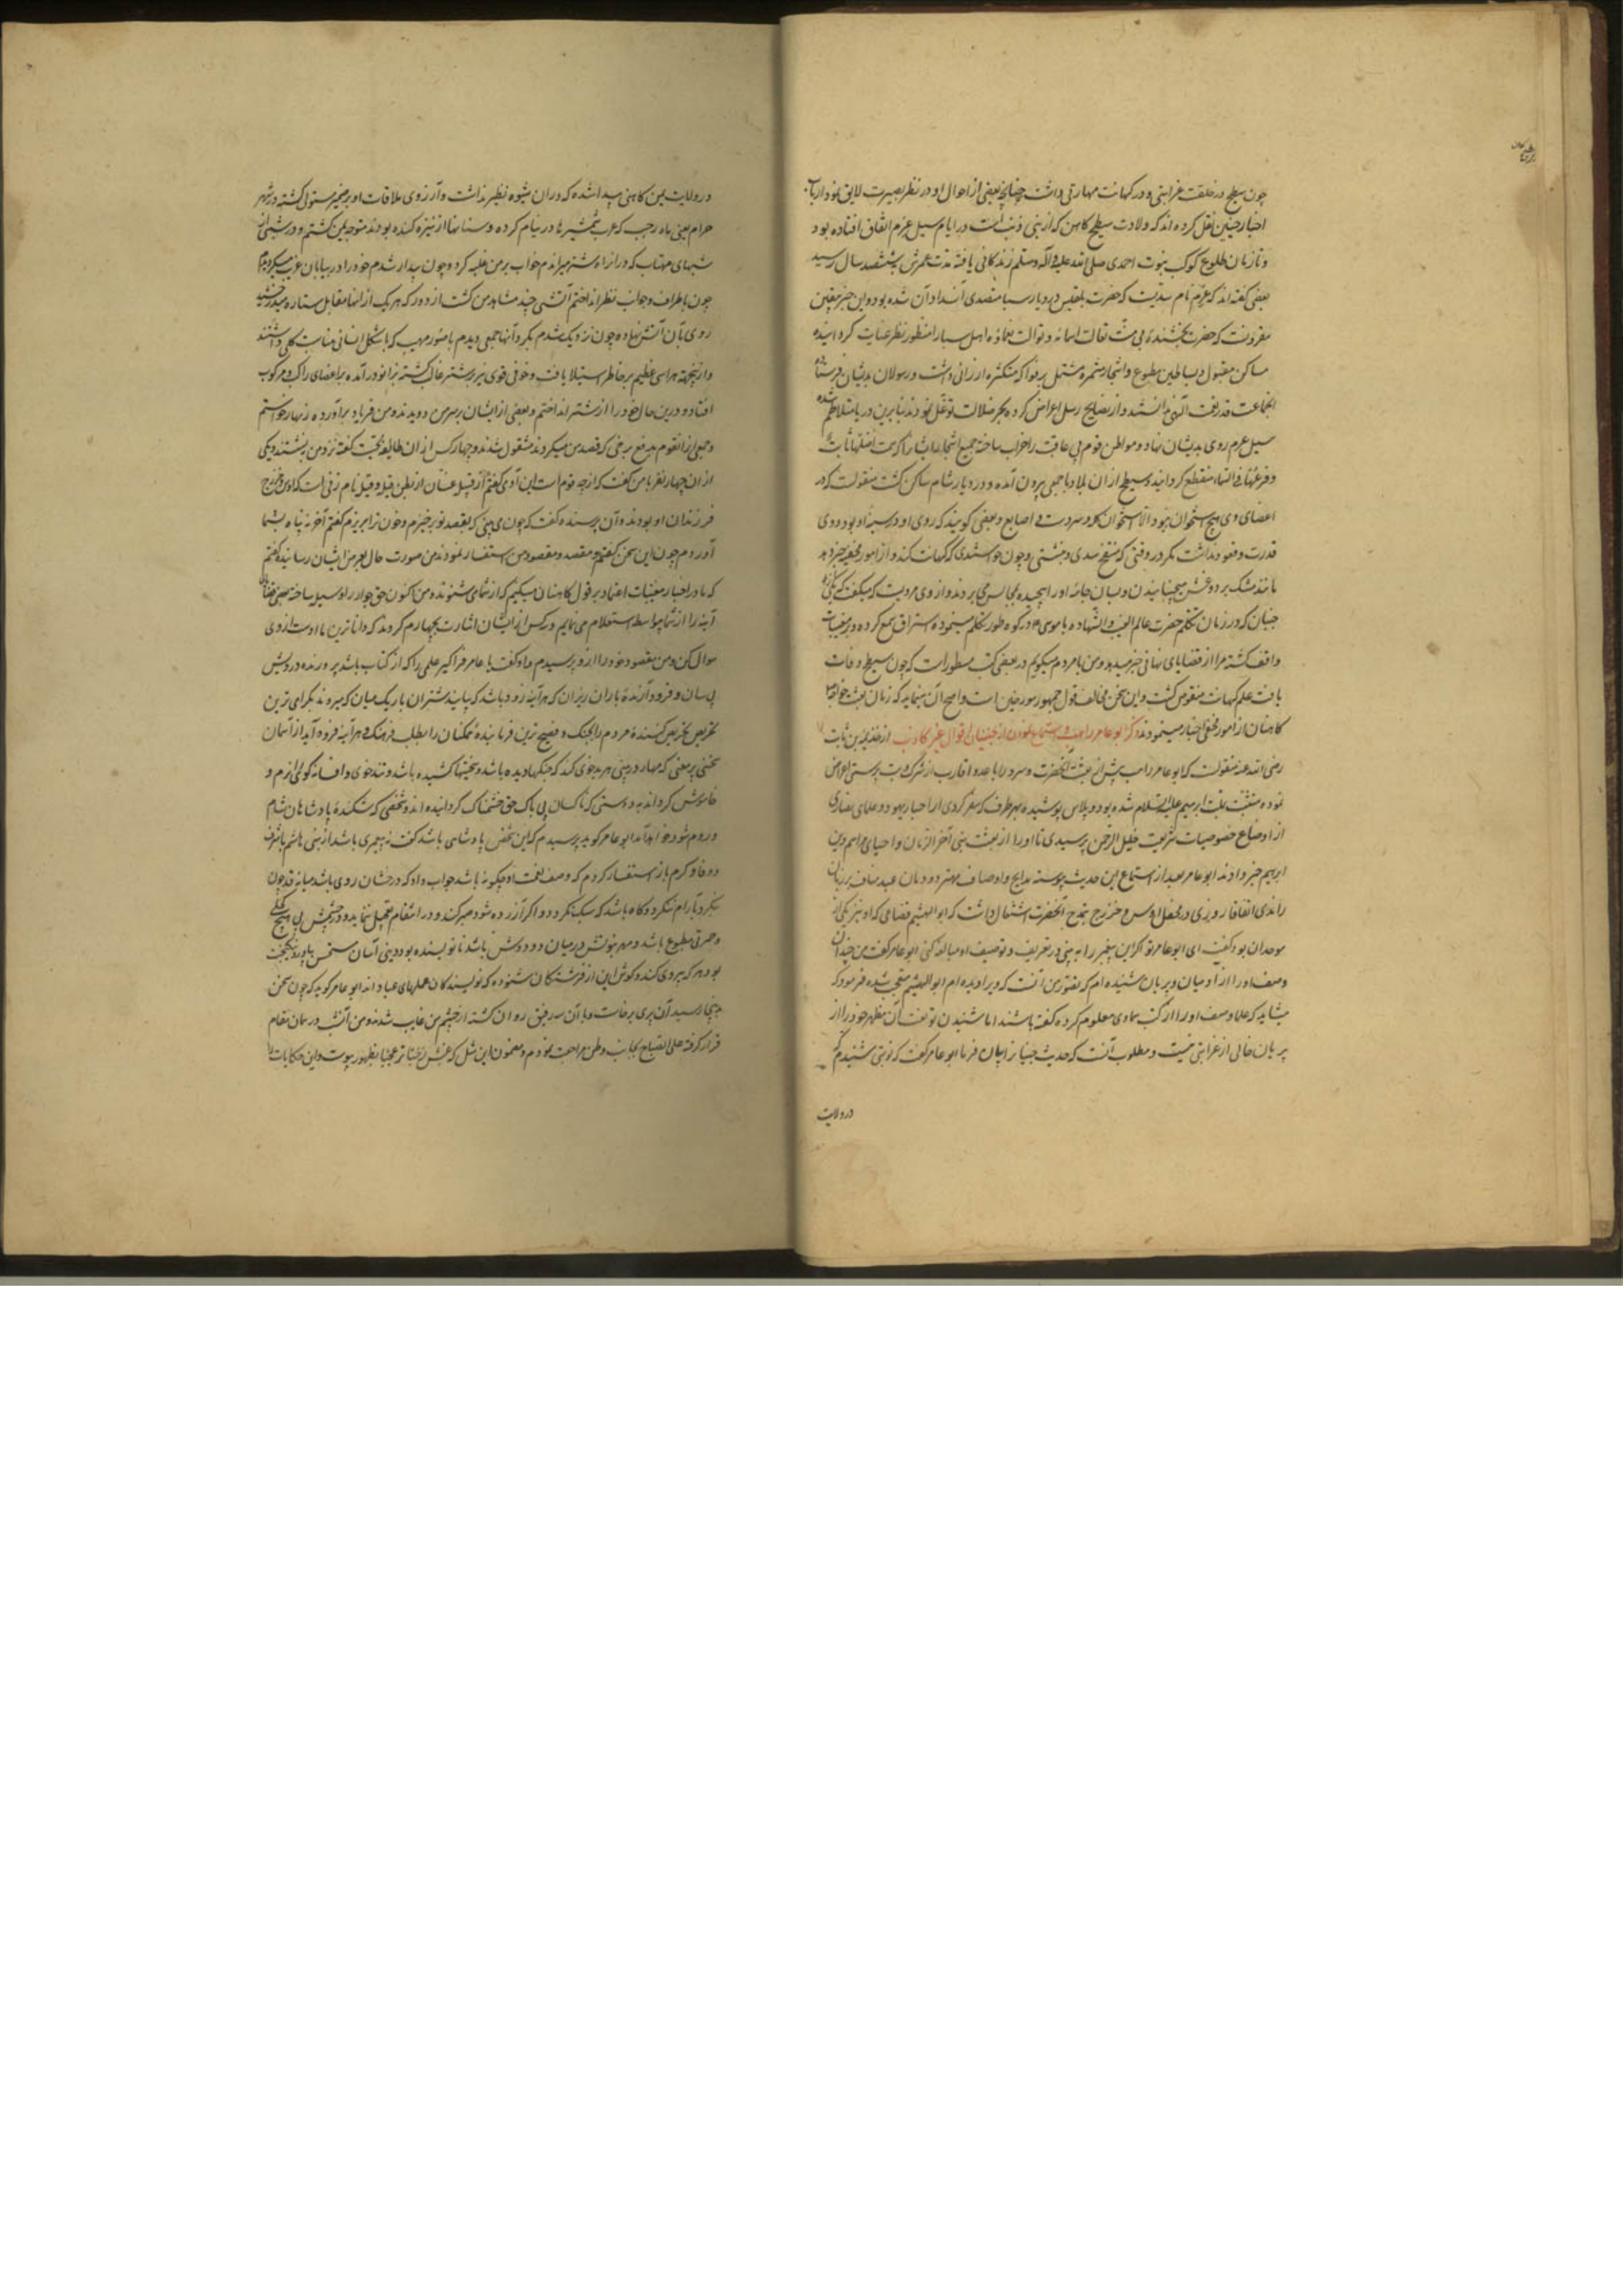 چون سطیح در خلقت غرابتی و در کهانت مهارتی داشت چنانچه بعضی از احوال او در نظر بصیرت لایق نمود ارباب
اخبار چنین نقل کرده‌اند که ولادت سطیح کاهن که از بنی ذئب است در ایام سیل عرم اتفاق افتاده بود
و تا زمان طلوع کوکب نبوت احمدی صلی الله علیه و آله و سلم زندگانی یافته مدت عمرش بششصد سال رسید
بعضی گفته‌اند که عرم نام سدیست که حضرت بلقیس در دیار سبا متصدی انسداد آن شده بود و این خبر بیقین
مقرونست که حضرت بخشنده بی منت تعالت اسمائه و توالت نعمائه اهل سبا را منظور نظر عنایت گردانیده
مساکن مقبول و بساطین مطبوع و اشجار مثمره مشتمل بر فواکه متکثره ارزانی داشت و رسولان بدیشان فرستاد
انجماعت قدر نعت الهی ندانستند و از نصایح رسل اعراض کرده ببحر ضلالت توغل نمودند بنابرین دریا متلاطم شده
سیل عرم روی بدیشان نهاد و مواطن قوم بی عاقبت را خراب ساخته جمیع اشجار ایشان را که سمت اصلها ثابت
و فرعها فی السماء منقطع گردانید و سطیح از ان بلاد با جمعی بیرون آمده و در دیار شام ساکن گشت منقولست که در
اعضای وی هیچ استخوان نبود الا استخوان کله و سر دست و اصابع و بعضی گویند که روی او در سینه او بود و وی
قدرت و قعود نداشت مگر در وقتی که منتفخ شدی و بنشتی و چون خواستندی که کهانت کند و از امور مخفیه خبر دهد
مانند مشک بر دوغش میجنبانیدند و بسان جامه او را پیچیده بمجالس می‌بردند و از وی مرویست که میگفت که یکی از
جنیان که در زمان تکلم حضرت عالم الغیب و الشهاده با موسی در کوه طور تکلم مینموده استراق سمع کرده و بر مغیبات
واقف گشته مرا از قضایای نهانی خبر میدهد و من با مردم میگویم در بعضی کتب مسطور است که چون سطیح وفات
یافت علم کهانت منقرض گشت و این سخن مخالف قول جمهور مورخین است و اصح آن مینماید که زمان بعثت
کاهنان از امور مخفی اخبار مینمودند ذکر ابو عامر راهب و استماع نمودن از جنیان اقوال غیر کاذب از خذیمه بن ثابت
رضی الله عنه منقولست که ابو عامر راهب پیش از بعثت آنحضرت و سرور از اباعد و اقارب از شرک و بت پرستی اعراض
نموده متشبث بملت ابرهیم علیه السلام شده بود و پلاس پوشیده بهر طرف که سفر کردی از احبار یهود و علمای نصاری
از اوضاع خصوصیات شریعت خلیل الرحمن پرسیدی تا او را از بعثت نبی آخر الزمان و احیای مراسم دین
ابرهیم خبر دادند ابو عامر بعد از استماع این حدیث پیوسته مدایح و اوصاف مهتر دودمان عبد مناف بر زبان
راندی اتفاقا روزی در محفل اوس و خزرج بمدح آنحضرت اشتغال داشت که ابو الهیثم قضاعی که او نیز یکی از
موحدان بود گفت ای ابو عامر تو اگر این پیغمبر را به بینی در تعریف و توصیف او مبالغه کنی ابو عامر گفت من چندان
وصف او را از آدمیان و پریان شنیده‌ام که تصور من آنست که ویرا دیده‌ام ابو الهیثم متعجب شده فرمود که
میشاید که علما وصف او را از کتب سماوی معلوم کرده گفته باشند اما شنیدن تو نعت آن مظهر جود را از
پریان خالی از غرابتی نیست و مطلوب آنست که حدیث جنیانرا بیان فرما ابو عامر گفت که نوبتی شنیدم که
در ولایت
در ولایت یمن کاهنی پیدا شده که در ان شیوه نظیر نداشت و آرزوی ملاقات او بر ضمیر مستولی گشته در شهر
حرام یعنی ماه رجب که عرب شمشیرها در نیام کرده و سنانها از نیزه کنده بودند متوجه یمن گشتم و در شبی از
شبهای مهتاب که در ان راه شتر میراندم خواب بر من غلبه کرد و چون بیدار شدم خود را در بیابان غریب
چون باطراف و جوانب نظر انداختم آتشی چند مشاهد من گشت از دور که هر یک از انها مقابل ستاره میدرخشید
روی بآن آتش نهاده چون نزدیک شدم بگرد آنها جمعی دیدم با صور مهیب که با شکل انسانی مناسبت کلی داشتند
و ازینجهة هراسی عظیم بر خاطر استیلا یافت و خوفی قوی نیز بر شتر غالب گشته بزانو درآمده بر اعضای راکب و مرکوب
افتاد و درین حال خود را از شتر انداختم و بعضی از ایشان بر سر من دویدند و من فریاد برآورده زنهار خواستم
و جمعی از انقوم بدفع برخی که قصد من میکردند مشغول شدند و چهار کس از ان طایفه تحیت گفته نزد من بنشستند و یکی
از ان چهار نفر با من گفت که از چه قوم است این آدمی گفتم از قبیله غسان از بطن قیله و قیله نام زنی است که اوس و خزرج
فرزندان او بودند و آن پرسنده گفت که چون می بینی که بقصد تو برخیزم و خون ترا بریزم گفتم آخر نه پناه بشما
آوردم چون این سخن گفتم و مقصد و مقصود من استفسار نمودند من صورت حال بعرض ایشان رسانیده گفتم
که ما در اخبار مغیبات اعتماد بر قول کاهنان میکنیم که از شما می شنوند و من اکنون حق جوار را وسیله ساخته
آینه را از شما بیواسطه استعلام می نمایم و سه کس از ایشان اشارت بچهارم کردند که داناترین ما اوست از وی
سوال کن و من مقصود خود را از و پرسیدم و او گفت یا عامر فرا گیر علمی را که از کتاب باشد
بی‌سان و فرود آرنده باران ریزان که هر آینه زود باشد که بیایند شتران باریک میان که میروند
مردم را بجنگ و فصیح ترین فرماینده ممکنان را بطلب فرهنگ و هر آینه فرود آید از آسمان
سخنی پر معنی که مهار در بینی هر بدخوی کند که جنگها دیده باشد و سختیها کشیده باشد و تندخوی و افسانه گوی را نرم و
خاموش گرداند به دوستی که ناکسان بی باک حق خشمناک گردانیده‌اند و شخصی که شکننده پادشاهان شام
و روم شود ابو عامر گوید پرسیدم که این شخص پادشاهی باشد گفت نه پیغمبری باشد از بنی هاشم با شرف
و وفا و کرم باز استفسار کردم که وصف نعت او چگونه باشد جواب داد که درخشان روی باشد میانه قد چون
بنگرد بآرام بنگرد و گاه باشد که سبک بنگرد و اگر آزرده شود صبر کند و در انتقام تعجیل ننماید و در چشمش
و حمرتی مطبوع باشد و مهر نبوتش در میان دو دوش باشد نانویسنده بود و دینی آسان
بود هر که پیروی کند و گوش این از فرشتگان شنوده که نویسندگان عملهای عباد اند ابو عامر گوید که چون سخن
بدینجا رسید آن پری برخاست و با آن سه رفیق روان گشته از چشم من غایب شدند و من آنشب در همان مقام
قرار گرفته علی الصباح بجانب وطن مراجعت نمودم و مضمون این مثل که بظهور پیوست و این حکایات